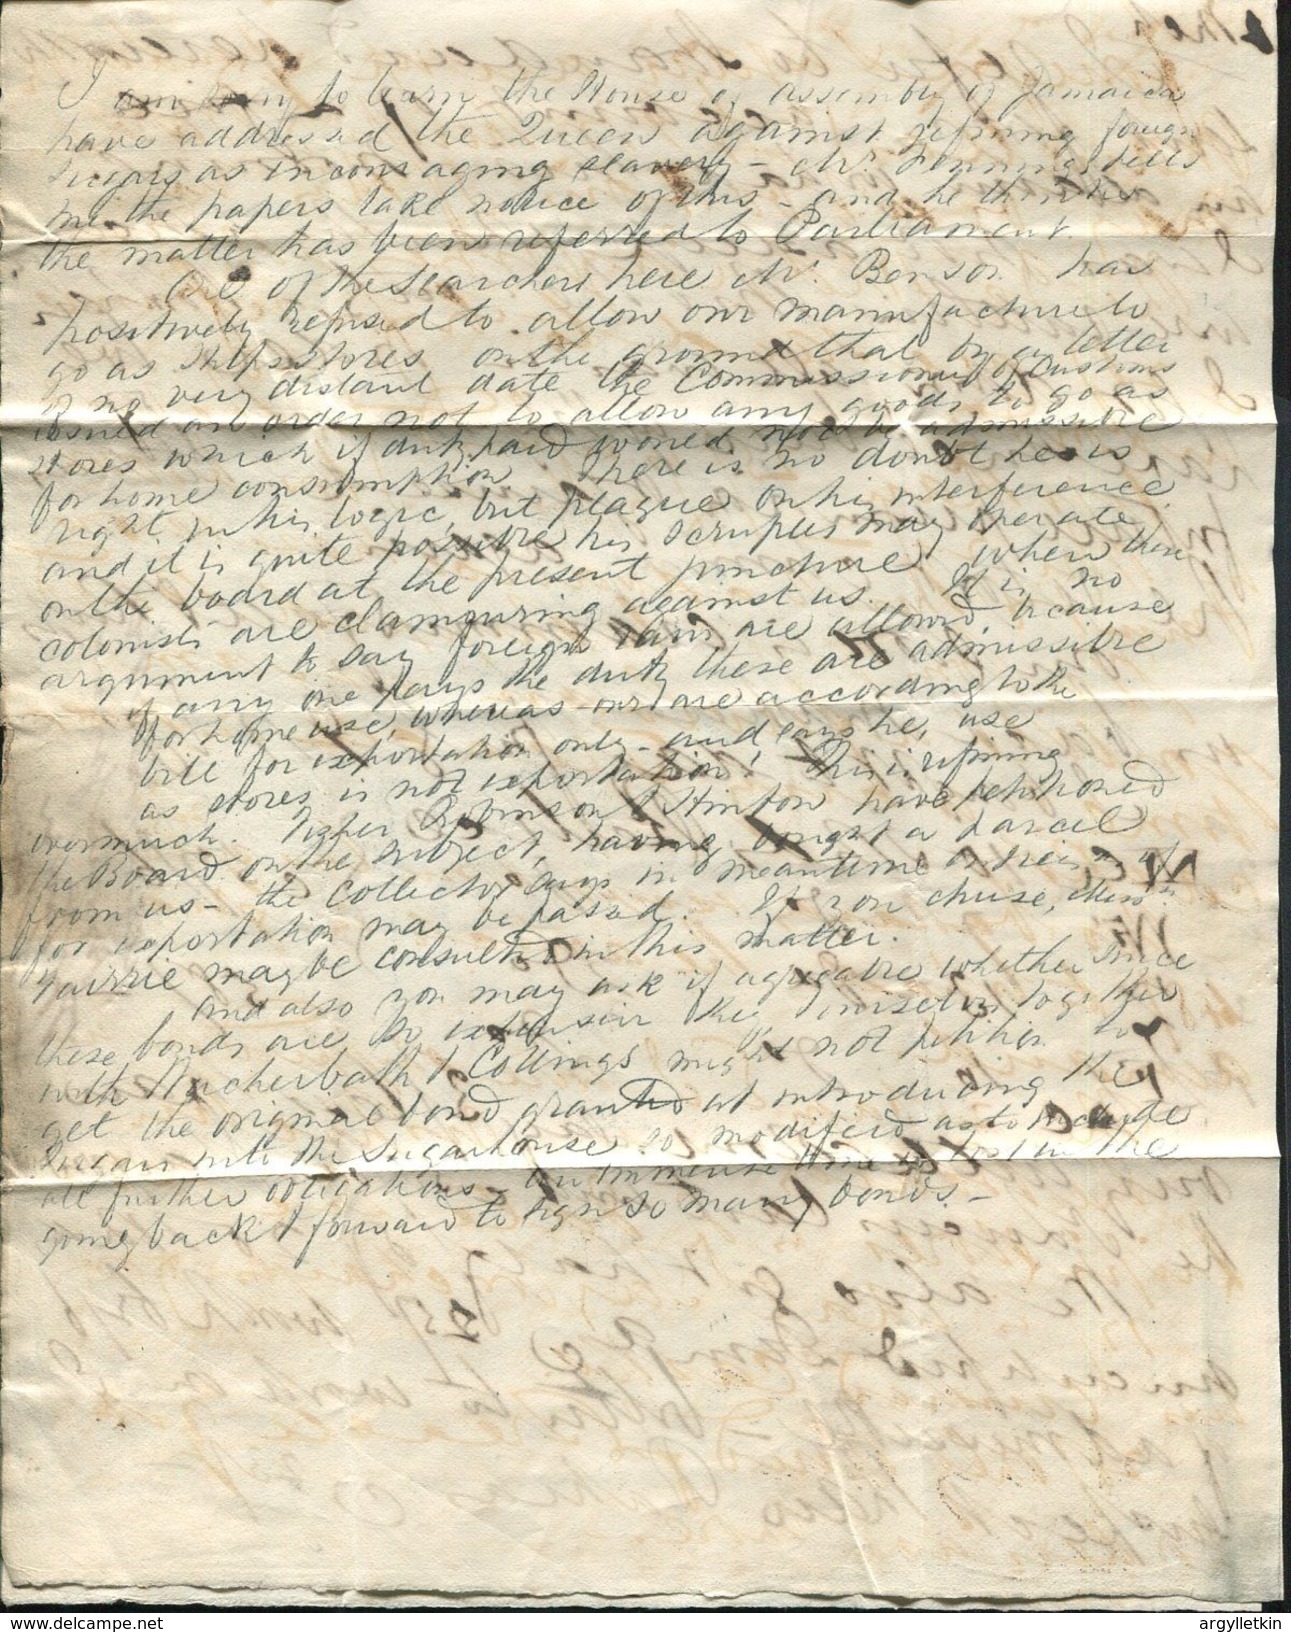 I am sorry to learn the House of Assembly of Jamaica
have addressed the Queen against refining foreign
sugars as incouraging slavery - Mr. Jennings tells
me the papers take notice of this - and he thinks
the matter has been referred to Parliament
One of the Searchers here Mr. Benson has
positively refused to allow our manufacture to
go as Ships stores on the ground that by a letter
of no very distant date the Commissioners of Customs
issued an order not to allow any goods to go as
stores which if duty paid would not be admissible
for home consumption. There is no doubt he is
right in his logic, but plague on his interference
and it is quite possible his scruples may operate
on the board at the present juncture when the
colonists are clamouring against us. It is no
argument to say foreign are allowed, because
if any one pays the duty these are admissible
for home use, whereas ours are according to the
bill for exportation only - and says he, use
as stores is not exportation! This is refining
overmuch. Robinson & Hinton have petitioned
the Board on the subject, having bought a parcel
from us - the Collector says in meantime
for exportation may be passed. If you chuse, Messrs.
Fairrie may be consulted in this matter.
And also you may ask if agreeable whether since
these bonds are so extensive they together
with & Collings might not petition to
get the original bond granted at introducing the
Sugars into the Sugarhouse so modified as to include
all further obligations - an immense time is lost in the
going back & forward to sign so many bonds. -
argylletkin
www.delcampe.net